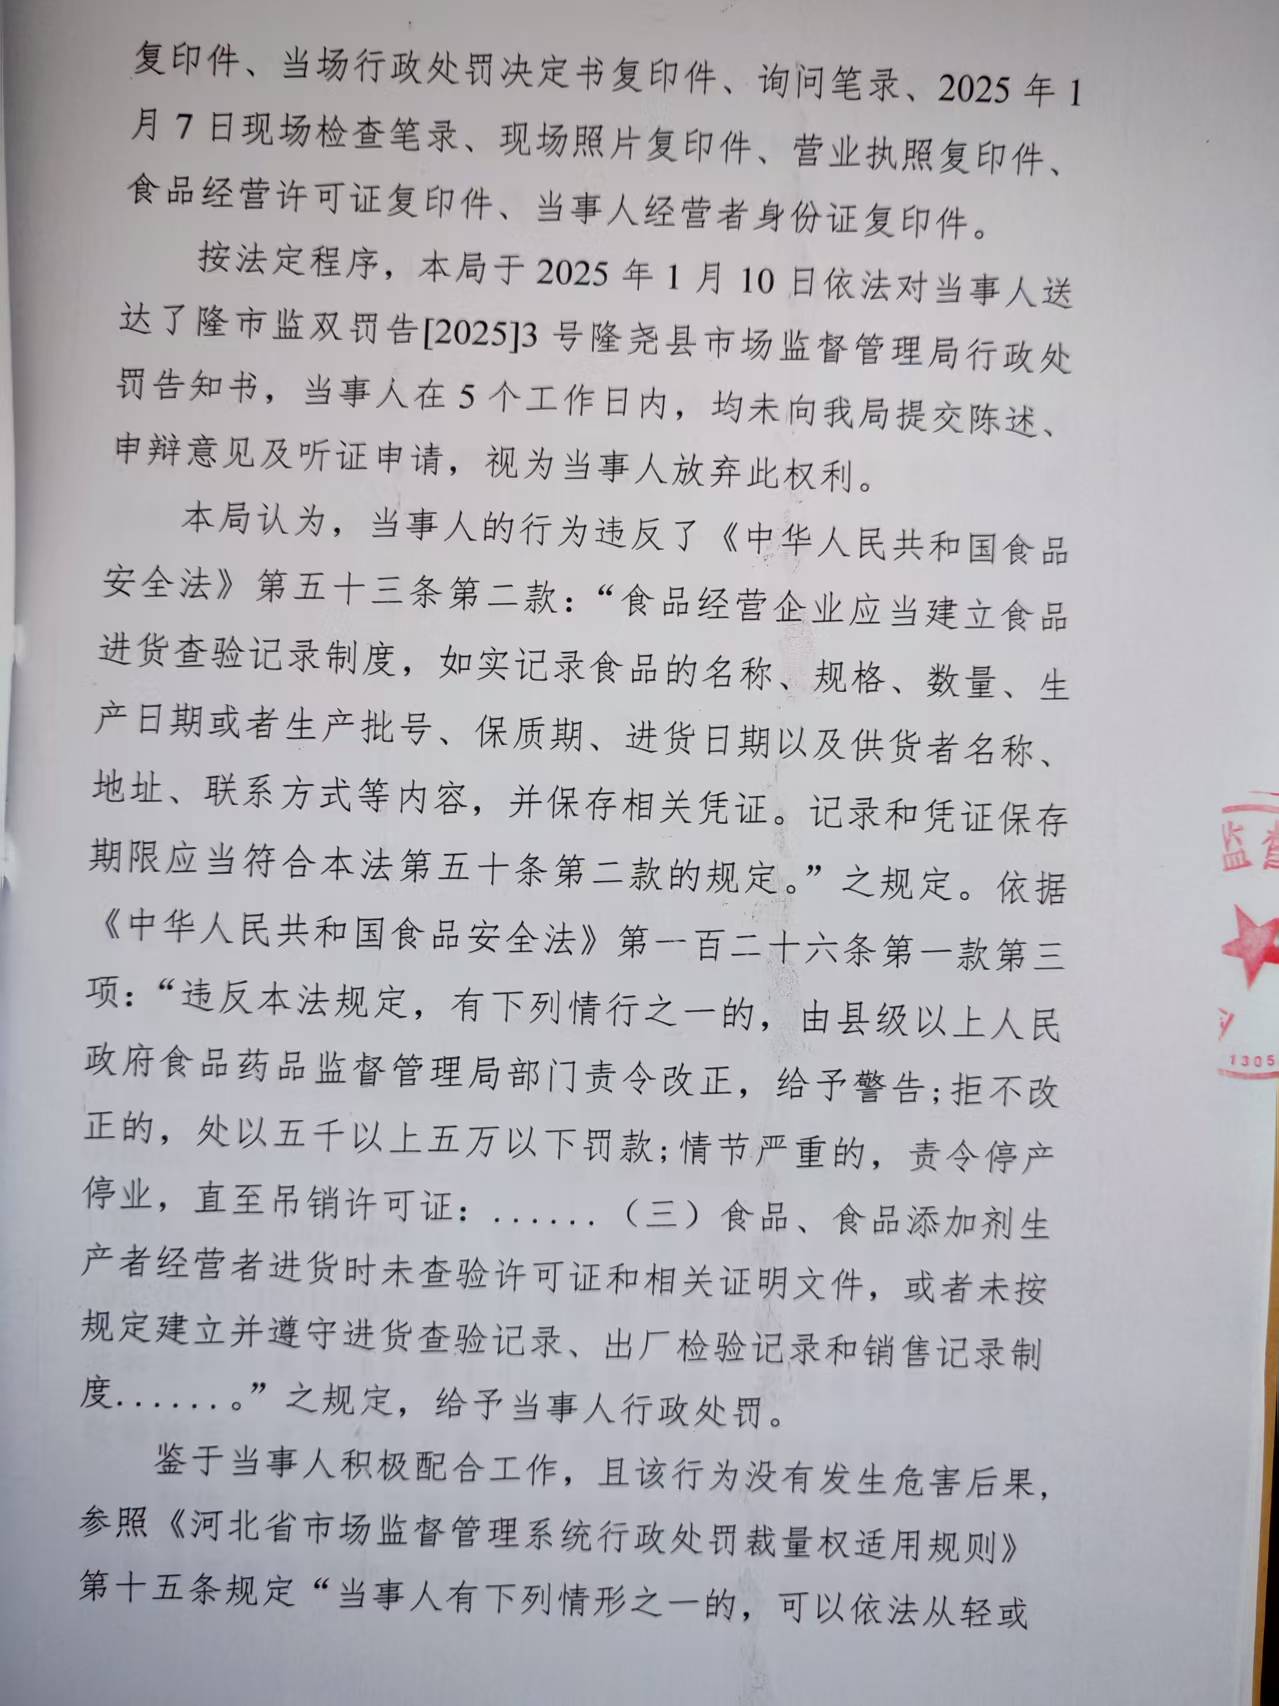 复印件、当场行政处罚决定书复印件、询问笔录、2025 年 1
月 7 日现场检查笔录、现场照片复印件、营业执照复印件、
食品经营许可证复印件、当事人经营者身份证复印件。
按法定程序，本局于 2025 年 1 月 10 日依法对当事人送
达了隆市监双罚告[2025]3 号隆尧县市场监督管理局行政处
罚告知书，当事人在 5 个工作日内，均未向我局提交陈述、
申辩意见及听证申请，视为当事人放弃此权利。
本局认为，当事人的行为违反了《中华人民共和国食品
安全法》第五十三条第二款：“食品经营企业应当建立食品
进货查验记录制度，如实记录食品的名称、规格、数量、生
产日期或者生产批号、保质期、进货日期以及供货者名称、
地址、联系方式等内容，并保存相关凭证。记录和凭证保存
期限应当符合本法第五十条第二款的规定。”之规定。依据
《中华人民共和国食品安全法》第一百二十六条第一款第三
项：“违反本法规定，有下列情行之一的，由县级以上人民
政府食品药品监督管理局部门责令改正，给予警告;拒不改
正的，处以五千以上五万以下罚款;情节严重的，责令停产
停业，直至吊销许可证：......（三）食品、食品添加剂生
产者经营者进货时未查验许可证和相关证明文件，或者未按
规定建立并遵守进货查验记录、出厂检验记录和销售记录制
度.......。”之规定，给予当事人行政处罚。
鉴于当事人积极配合工作，且该行为没有发生危害后果，
参照《河北省市场监督管理系统行政处罚裁量权适用规则》
第十五条规定“当事人有下列情形之一的，可以依法从轻或
监督
1305